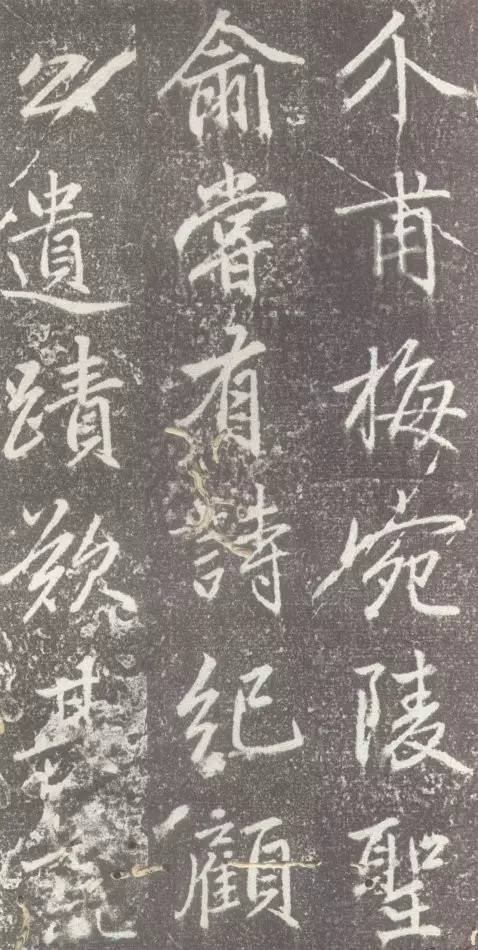 介甫梅宛陵聖
俞嘗有詩紀顧
公遺蹟歎其荒